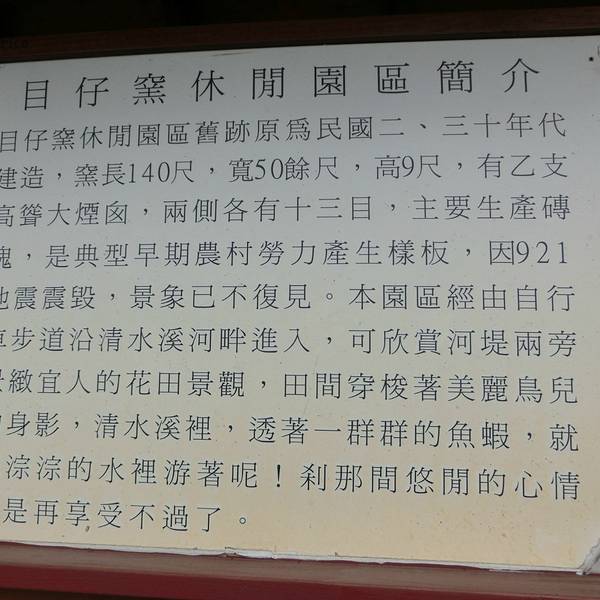 目仔窯休閒園區簡介
目仔窯休閒園區舊跡原為民國二、三十年代
建造，窯長140尺，寬50餘尺，高9尺，有乙支
高聳大煙囪，兩側各有十三目，主要生產磚
塊，是典型早期農村勞力產生樣板，因921
地震震毀，景象已不復見。本園區經由自行
車步道沿清水溪河畔進入，可欣賞河堤兩旁
景緻宜人的花田景觀，田間穿梭著美麗鳥兒
的身影，清水溪裡，透著一群群的魚蝦，就
淙淙的水裡游著呢！剎那間悠閒的心情
是再享受不過了。